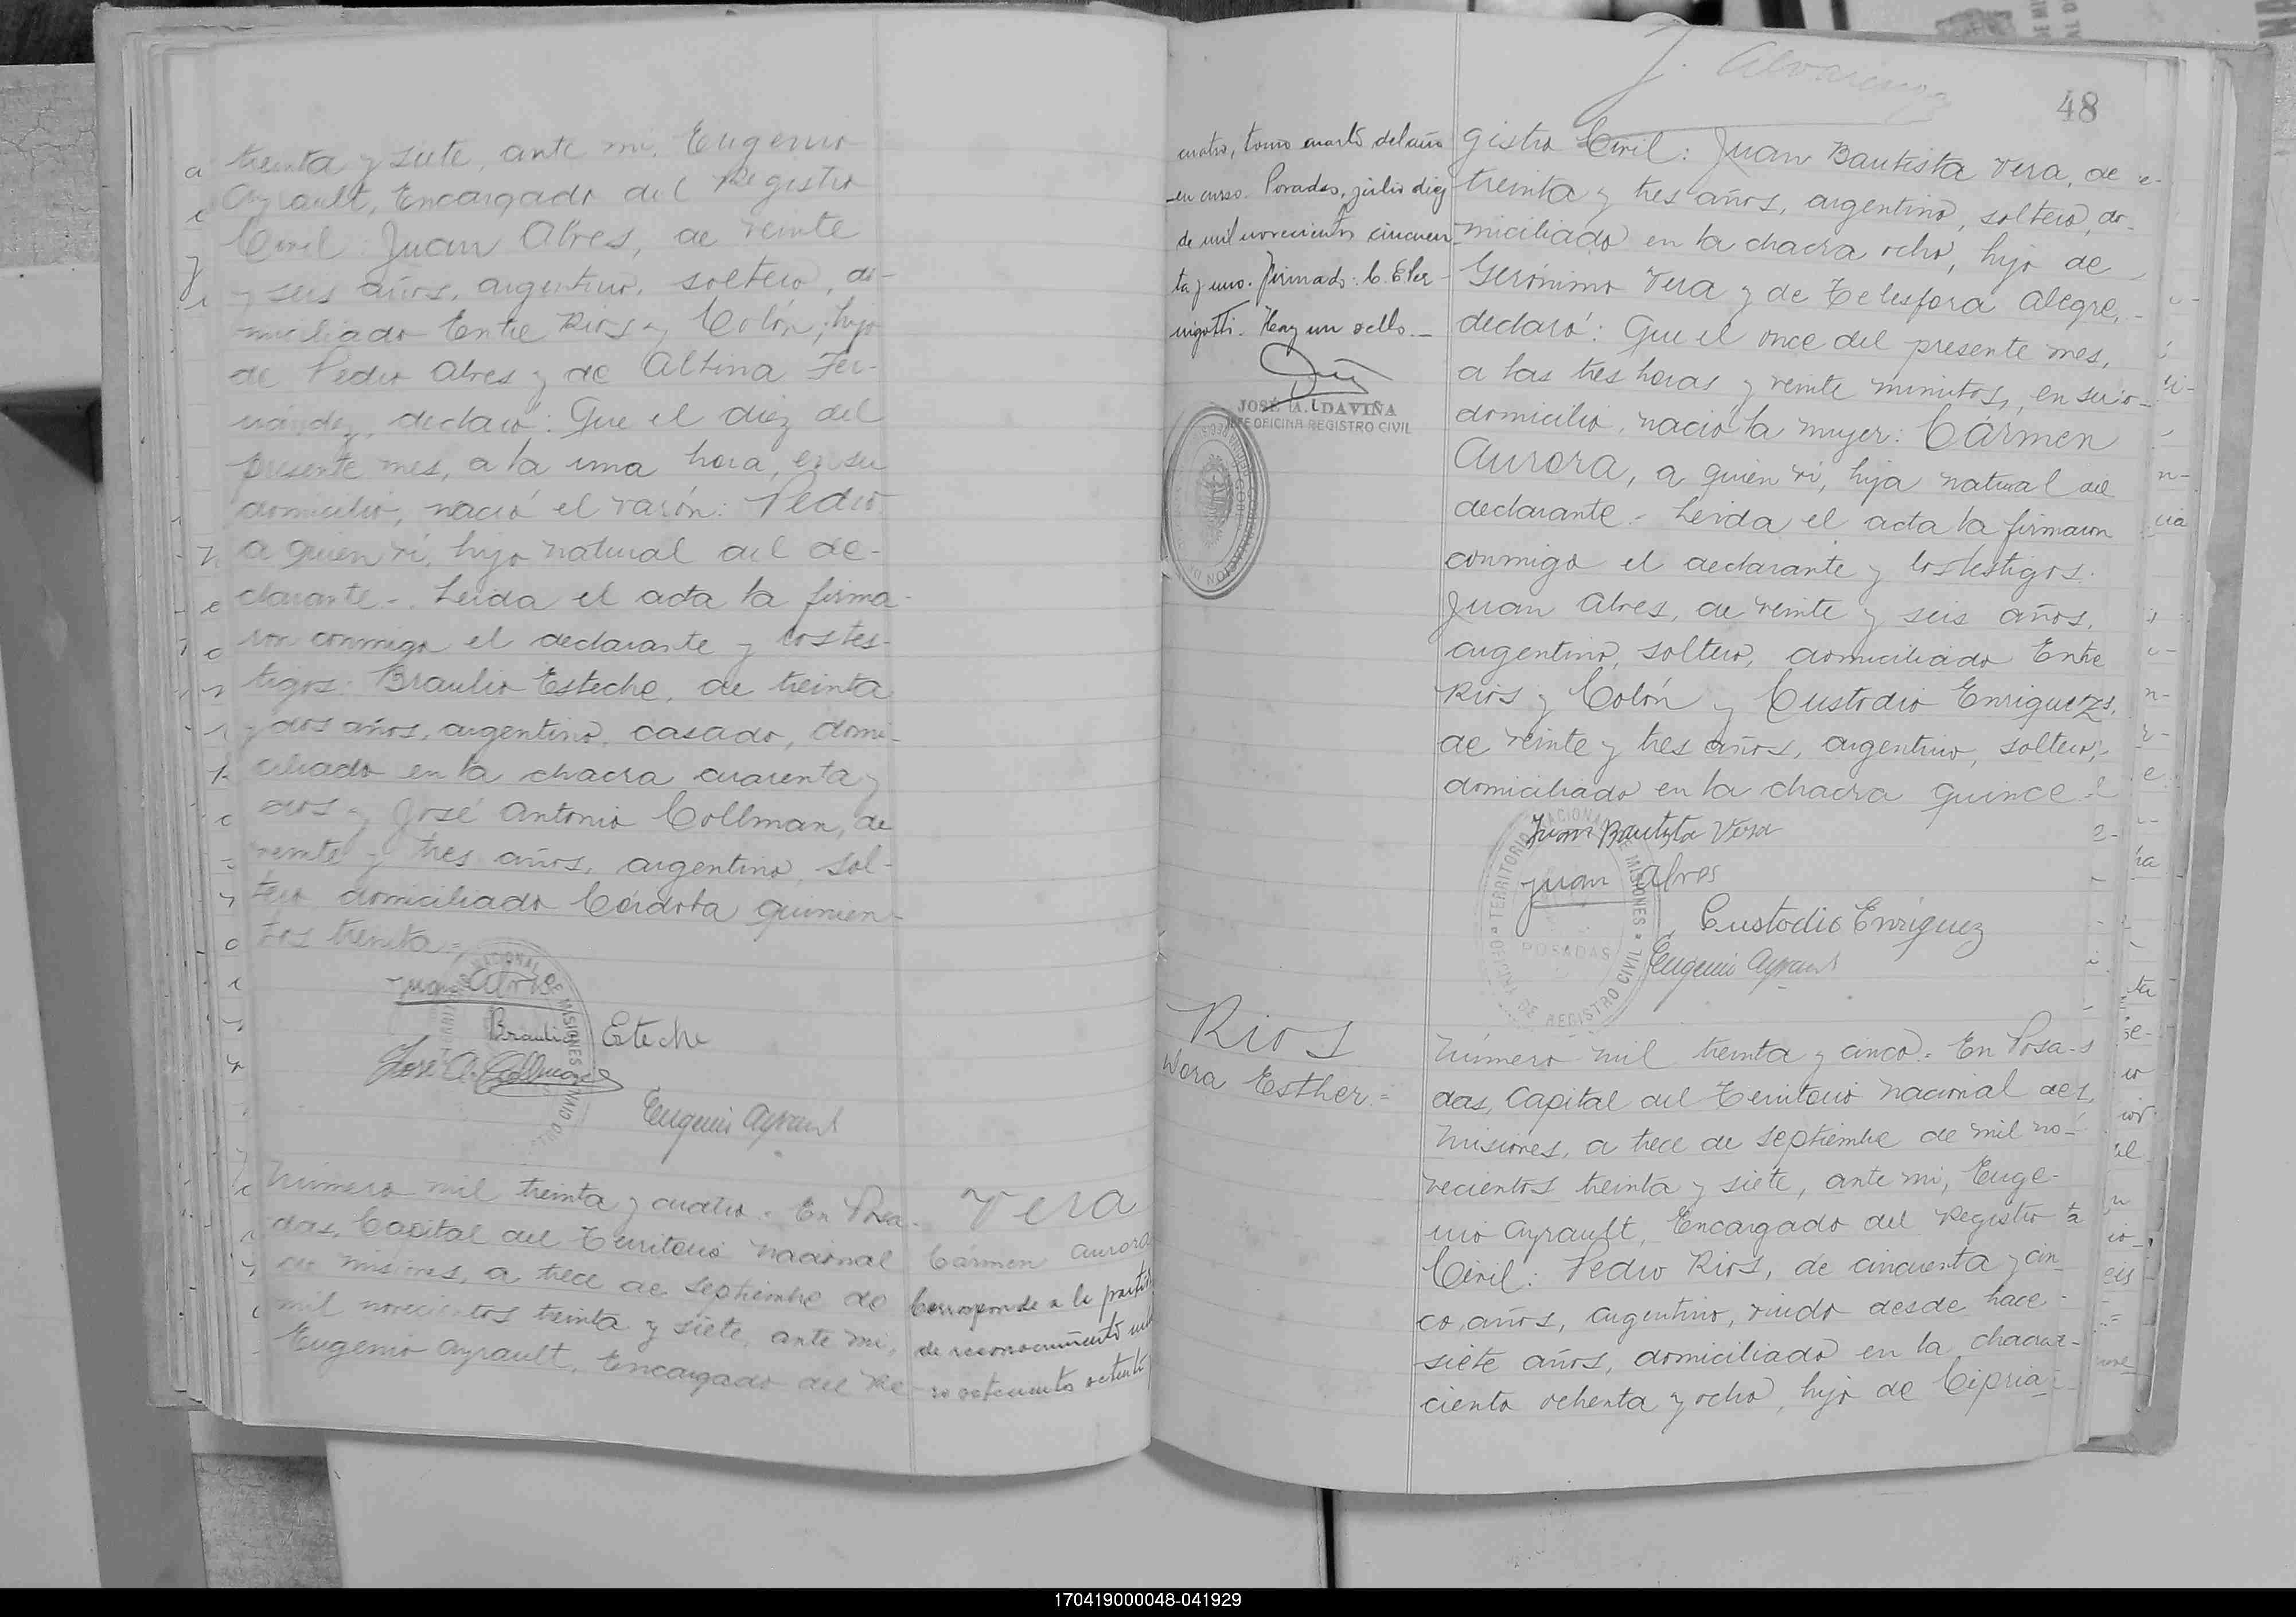 treinta y siete, ante mi, Eugenio
Ayrault, Encargado del Registro
Civil: Juan Alves, de veinte
y seis años, argentino, soltero, do-
miciliado Entre Rios y Colón, hijo
de Pedro Alves y de Altina Fer-
nández, declaró: Que el diez del
presente mes, a la una hora, en su
domicilio, nació el varón: Pedro
a quien vi, hijo natural del de-
clarante.- Leida el acta la firma-
ron conmigo el declarante y los tes-
tigos: Braulio Esteche, de treinta
y dos años, argentino, casado, domi-
ciliado en la chacra cuarenta y
dos y José Antonio Collman, de
veinte y tres años, argentino, sol-
tero domiciliado Córdoba quinien-
tos treinta.=
Juan Alves
Braulio Esteche
José A. Collman
Eugenio Ayrault
Número mil treinta y cuatro. En Posa-
das, Capital del Territorio Nacional
de Misiones, a trece de septiembre de
mil novecientos treinta y siete, ante mi,
Eugenio Ayrault, Encargado del Re-
Vera
Cármen Aurora
Corresponde a la partida
de reconocimiento
ro setecientos
J. Alvarenga
48
cuatro, tomo cuarto del año
en curso. Posadas, julio diez
de mil novecientos cincuen-
ta y uno. Firmado: C. E.
Hay un sello.-
JOSÉ A. DAVIÑA
JEFE OFICINA REGISTRO CIVIL
gistro Civil: Juan Bautista Vera, de
treinta y tres años, argentino, soltero, do-
miciliado en la chacra ocho, hijo de
Gerónimo Vera y de Telesfora Alegre,
declaró: Que el once del presente mes,
a las tres horas y veinte minutos, en su
domicilio, nació la mujer: Cármen
Aurora, a quien vi, hija natural del
declarante.- Leida el acta la firmaron
conmigo el declarante y los testigos:
Juan Alves, de veinte y seis años,
argentino, soltero, domiciliado Entre
Rios y Colón y Custodio Enriquez,
de veinte y tres años, argentino, soltero,
domiciliado en la chacra quince.-
Juan Bautista Vera
Juan Alves
Custodio Enriquez
Eugenio Ayrault
TERRITORIO NACIONAL DE MISIONES
POSADAS
REGISTRO CIVIL
Rios
Dora Esther.=
Número mil treinta y cinco. En Posa-
das, Capital del Territorio Nacional de
Misiones, a trece de septiembre de mil no-
vecientos treinta y siete, ante mi, Euge-
nio Ayrault, Encargado del Registro
Civil: Pedro Rios, de cincuenta y cin
co años, argentino, viudo desde hace
siete años, domiciliado en la chacra
ciento ochenta y ocho, hijo de Cipria-
170419000048-041929